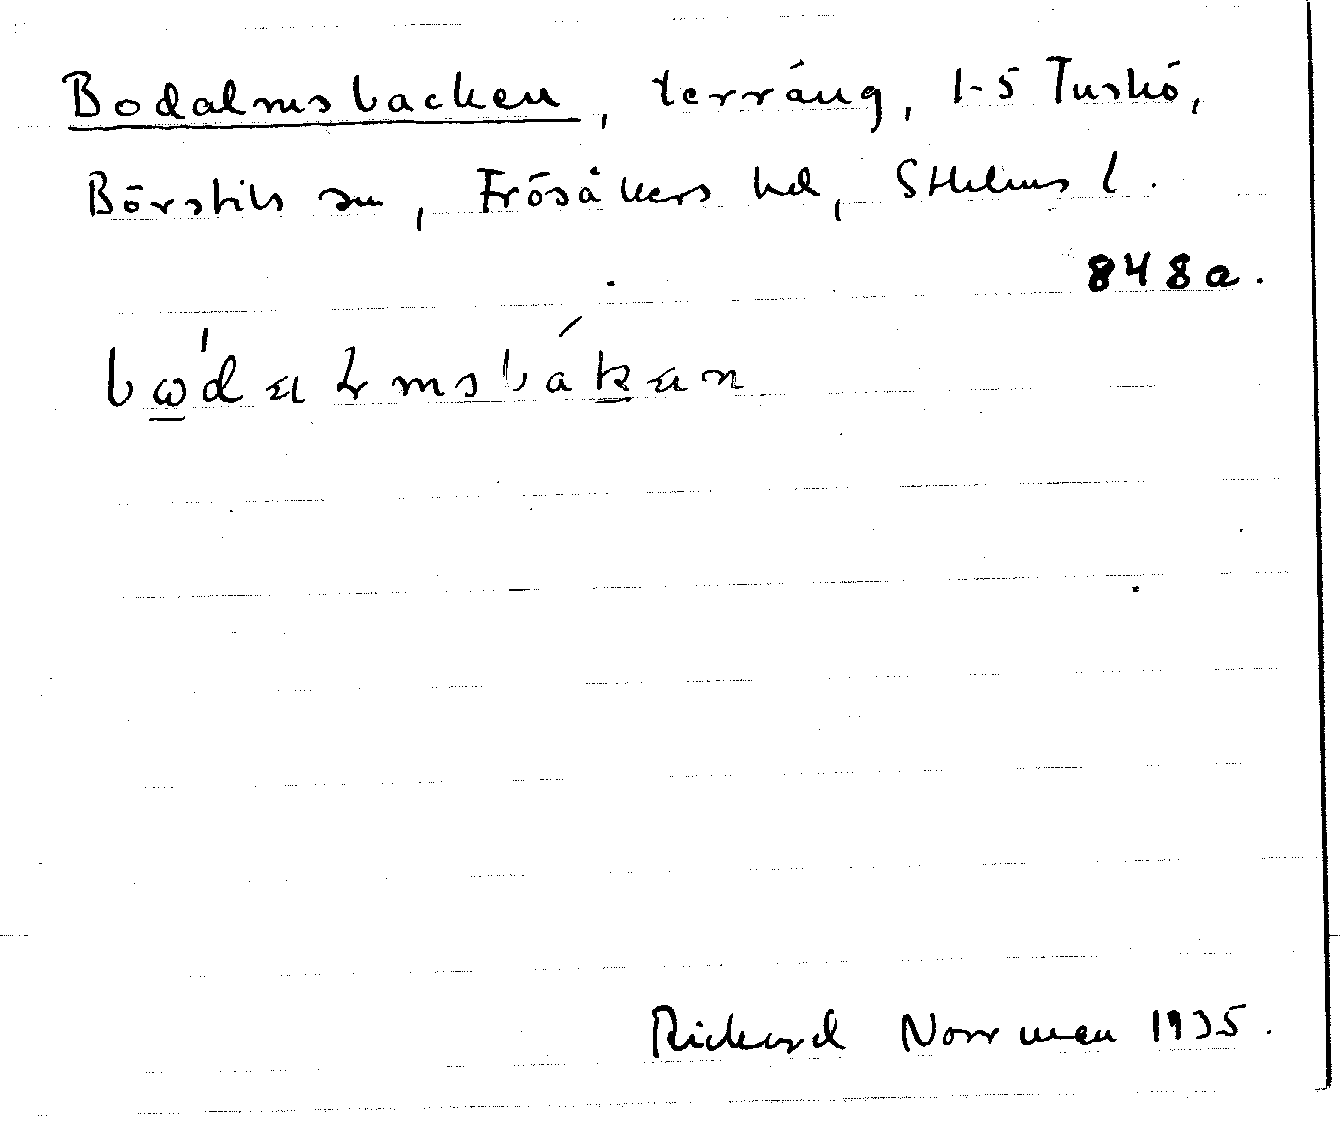 Bodalmsbacken, terräng, 1-5 Tuskö,
Börstils sn, Frösåkers hd, Sthlms l.
848a.
bώ̲daɫmsbák̲an
Rickard Norrman 1935.